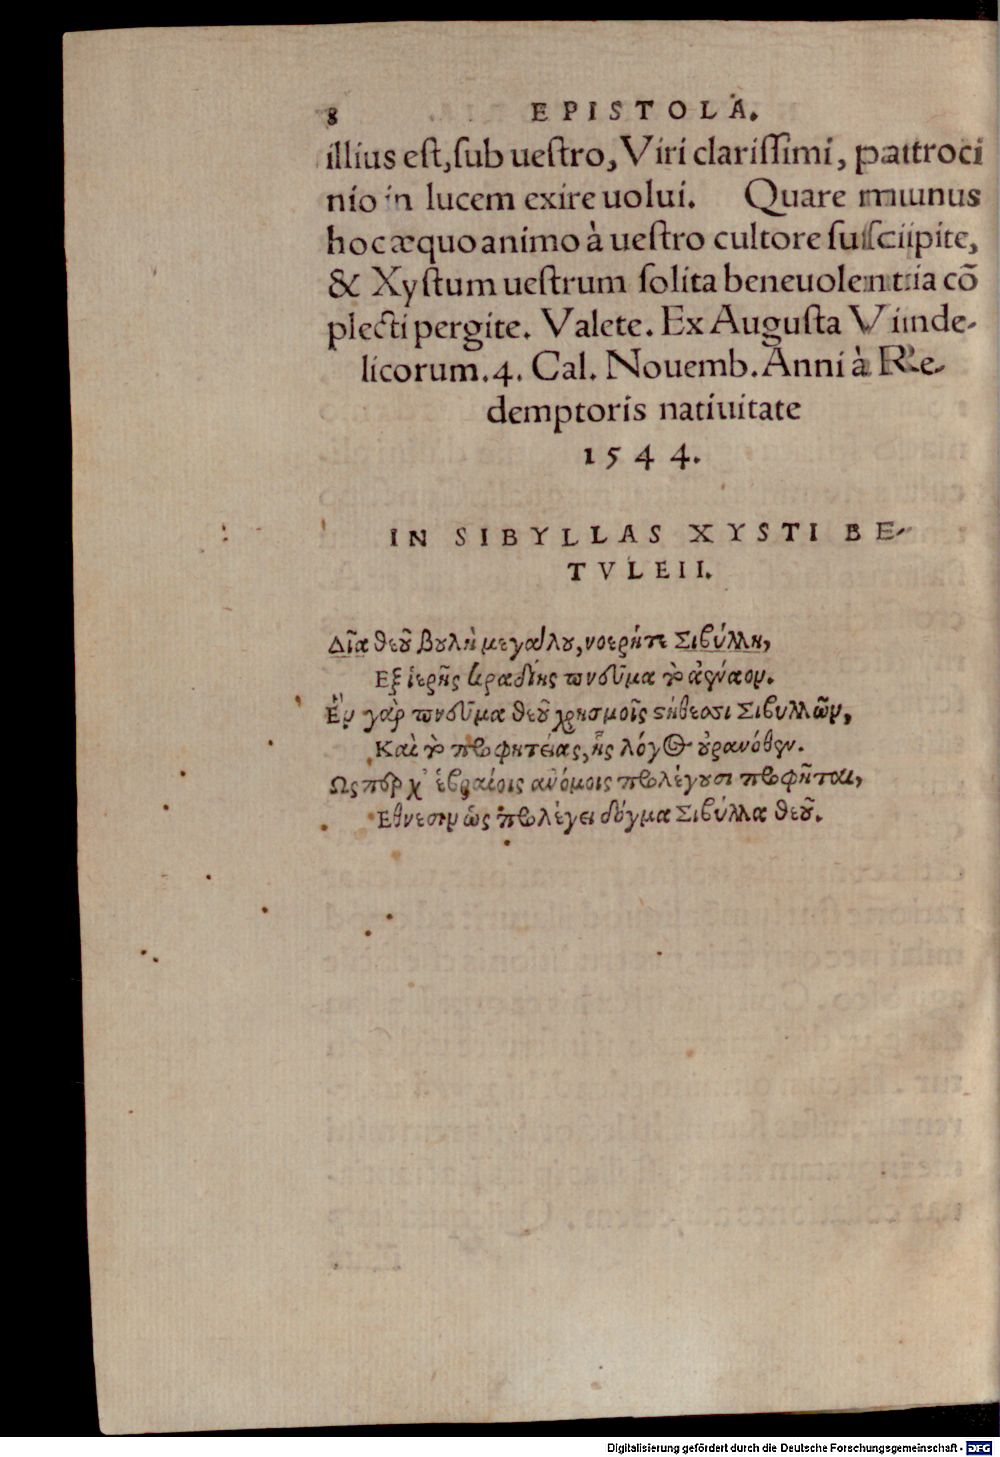 8 EPISTOLA.
illius eſt, ſub ueſtro, Viri clariſſimi, patroci
nio in lucem exire uolui. Quare munus
hoc æquo animo à ueſtro cultore ſuſcipite,
& Xyſtum ueſtrum ſolita beneuolentia cõ
plecti pergite. Valete. Ex Auguſta Vinde-
licorum. 4. Cal. Nouemb. Anni à Re-
demptoris natiuitate
1544.
IN SIBYLLAS XYSTI BE-
TVLEII.
Δῖα θεοῦ βουλὴ μεγάλου, νοερήτε Σιβύλλη,
Εξ ἱερῆς κραδίης πνεῦμα τὸ ἀγνάον.
Ἐν γὰρ πνεῦμα θεοῦ χρησμοῖς στήθεσσι Σιβυλλῶν,
Καὶ τὸ προφητείας, ἧς λόγος οὐρανόθεν.
Ως περ χ' ἑβραίοις ανόμοις προλέγουσι προφῆται,
Εθνεσιν ὡς προλέγει δόγμα Σιβύλλα θεοῦ.
Digitalisierung gefördert durch die Deutsche Forschungsgemeinschaft - DFG